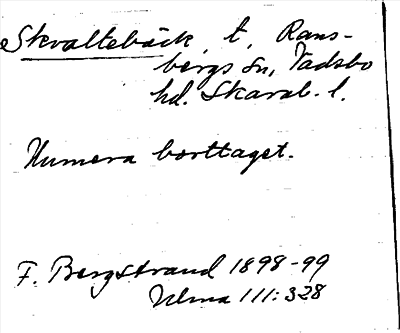 Skvaltebäck, t, Rans-
bergs sn, Vadsbo
hd. Skarab. l.
Numera borttaget.
F. Bergstrand 1898-99
Ulma 111:328